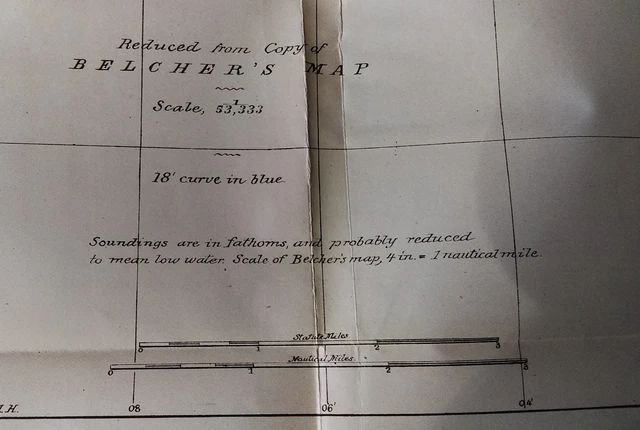 Reduced from Copy of
BELCHER'S MAP
Scale, 1/53,333
18' curve in blue.
Soundings are in fathoms, and probably reduced
to mean low water. Scale of Belcher's map, 4 in. = 1 nautical mile.
Statute Miles
0 1 2 3
Nautical Miles
0 1 2 3
I.H. 08 06' 04'